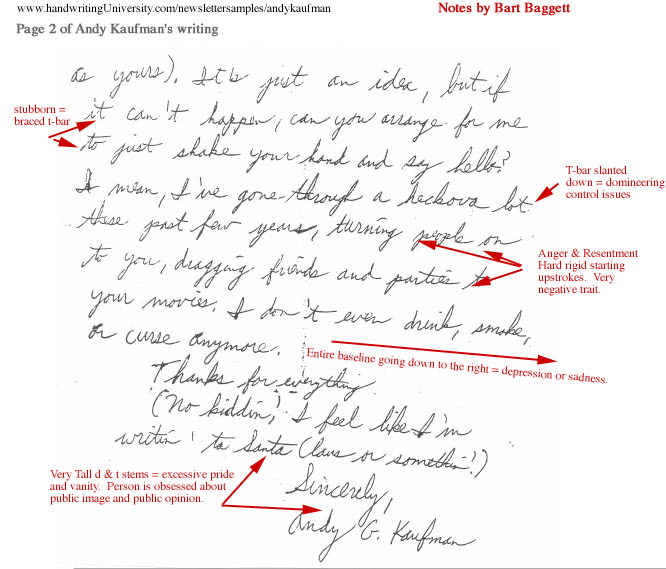 www.handwritingUniversity.com/newslettersamples/andykaufman
Notes by Bart Baggett
Page 2 of Andy Kaufman's writing
as yours). It's just an idea, but if
it can't happen, can you arrange for me
to just shake your hand and say hello?
I mean, I've gone through a heckova lot
these past few years, turning people on
to you, dragging friends and parties to
your movies. I don't even drink, smoke,
or curse anymore.
Thanks for everything
(No kiddin', I feel like I'm
writin' to Santa Claus or somethin'!)
Sincerely,
Andy G. Kaufman
stubborn =
braced t-bar
T-bar slanted
down = domineering
control issues
Anger & Resentment
Hard rigid starting
upstrokes. Very
negative trait.
Entire baseline going down to the right = depression or sadness.
Very Tall d & t stems = excessive pride
and vanity. Person is obsessed about
public image and public opinion.